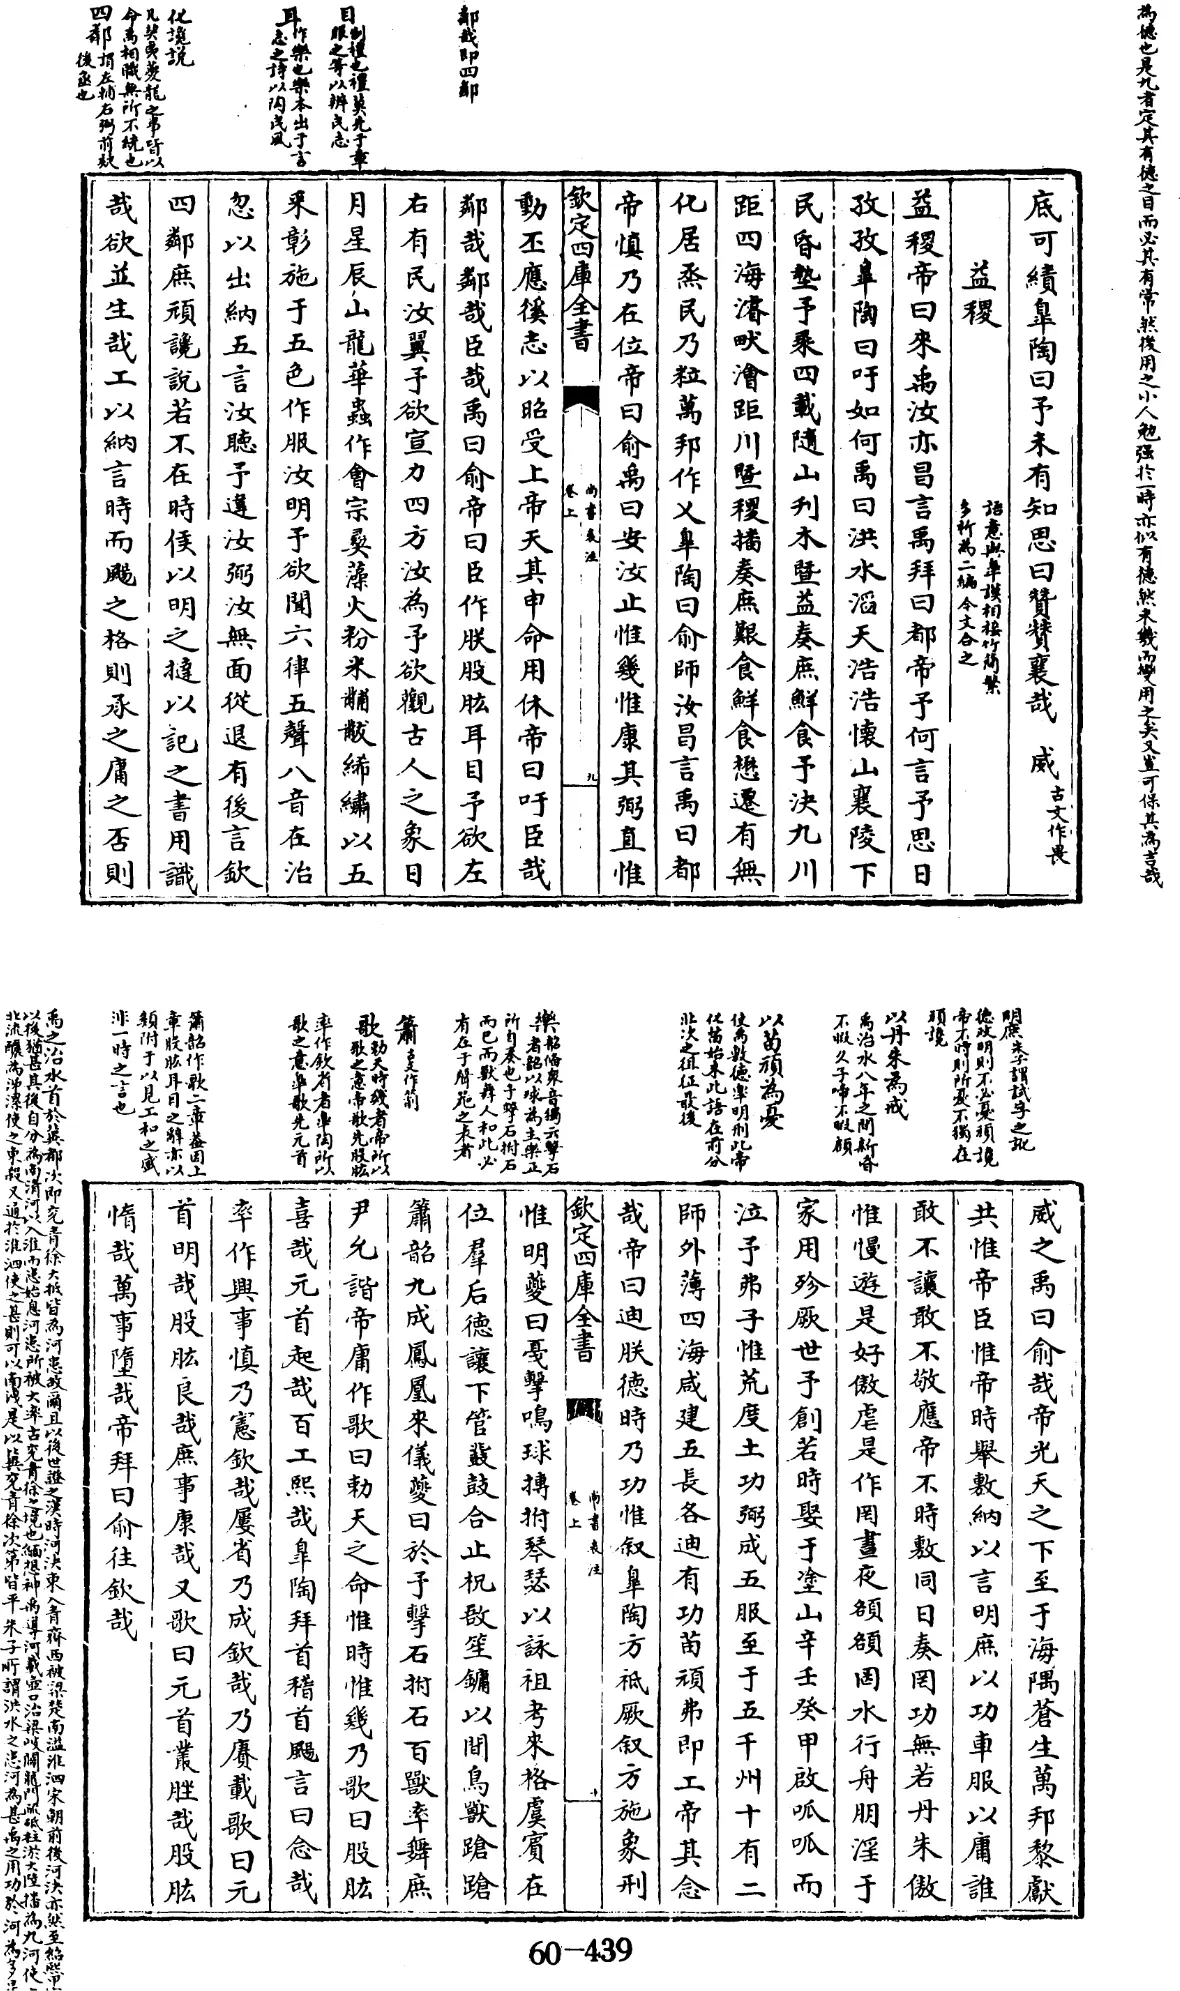 為德也是九者定其有德之目而必其有常然後用之小人勉强於一時亦似有德然未幾而變用之矣又豈可保其為吉哉
底可績皐陶曰予未有知思曰贊贊襄哉 威古文作畏
益稷
語意與皐謨相接竹簡繁
多析為二編今文合之
益稷帝曰來禹汝亦昌言禹拜曰都帝予何言予思日
孜孜皐陶曰吁如何禹曰洪水滔天浩浩懷山襄陵下
民昏墊予乘四載隨山刋木暨益奏庶鮮食予決九川
距四海濬畎澮距川暨稷播奏庶艱食鮮食懋遷有無
化居烝民乃粒萬邦作乂皐陶曰俞師汝昌言禹曰都
帝慎乃在位帝曰俞禹曰安汝止惟幾惟康其弼直惟
欽定四庫全書
尚書表注
卷上
九
動丕應徯志以昭受上帝天其申命用休帝曰吁臣哉
鄰哉鄰哉臣哉禹曰俞帝曰臣作朕股肱耳目予欲左
右有民汝翼予欲宣力四方汝為予欲觀古人之象日
月星辰山龍華蟲作會宗彛藻火粉米黼黻絺繡以五
采彰施于五色作服汝明予欲聞六律五聲八音在治
忽以出納五言汝聽予違汝弼汝無面從退有後言欽
四鄰庶頑讒說若不在時侯以明之撻以記之書用識
哉欲並生哉工以納言時而颺之格則承之庸之否則
鄰哉即四鄰
目制禮也禮莫先于章
服之等以辨民志
耳作樂也樂本出于言
志之詩以陶民風
化讒說
凡契夷夔龍之事皆以
命為相職無所不統也
四鄰謂左輔右弼前疑
後丞也
威之禹曰俞哉帝光天之下至于海隅蒼生萬邦黎獻
共惟帝臣惟帝時舉敷納以言明庶以功車服以庸誰
敢不讓敢不敬應帝不時敷同日奏罔功無若丹朱傲
惟慢遊是好傲虐是作罔晝夜頟頟罔水行舟朋淫于
家用殄厥世予創若時娶于塗山辛壬癸甲啟呱呱而
泣予弗子惟荒度土功弼成五服至于五千州十有二
師外薄四海咸建五長各迪有功苗頑弗即工帝其念
哉帝曰迪朕德時乃功惟叙皐陶方祗厥叙方施象刑
欽定四庫全書
尚書表注
卷上
十
惟明夔曰戛擊鳴球搏拊琴瑟以詠祖考來格虞賓在
位羣后德讓下管鼗鼓合止柷敔笙鏞以間鳥獸蹌蹌
簫韶九成鳳凰來儀夔曰於予擊石拊石百獸率舞庶
尹允諧帝庸作歌曰勅天之命惟時惟幾乃歌曰股肱
喜哉元首起哉百工熙哉皐陶拜首稽首颺言曰念哉
率作興事慎乃憲欽哉屢省乃成欽哉乃賡載歌曰元
首明哉股肱良哉庶事康哉又歌曰元首叢脞哉股肱
惰哉萬事墮哉帝拜曰俞往欽哉
明庶朱子謂試字之訛
德政明則不必憂頑讒
帝不時則所憂不獨在
頑讒
以丹朱為戒
禹治水八年之間新昏
不暇久子啼不暇顧
以苗頑為憂
使禹敷德皐明刑此帝
化苗始末此語在前分
北次之徂征最後
樂韶備衆音獨云擊石
拊石
簫古文作箾
歌勅天時幾者帝所以
歌之意帝歌先股肱
率作欽省者皐陶所以
歌之意皐歌先元首
簫韶作歌二章蓋因上
章股肱耳目之辭亦以
類附于以見工和之盛
非一時之言也
60-439